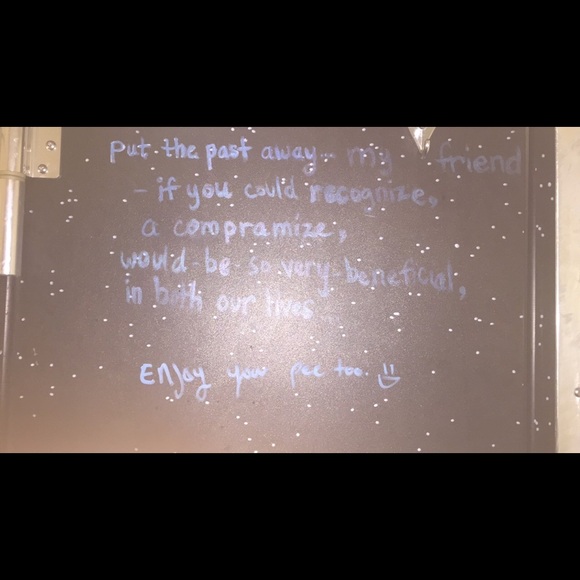 Put the past away... my friend
- if you could recognize,
a compramize,
would be so very beneficial,
in both our lives...
Enjoy your pee too.